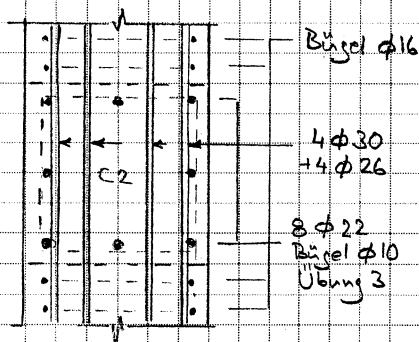 Bügel ϕ16
4ϕ30
+4ϕ26
C2
8ϕ22
Bügel ϕ10
Übung 3